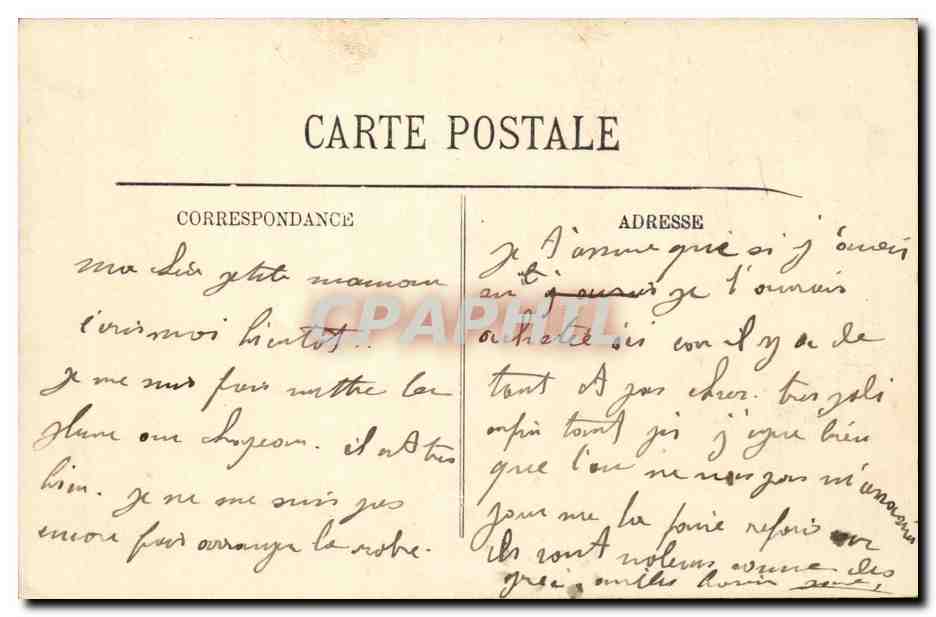 CARTE POSTALE
CORRESPONDANCE
ma petite maman
bientot..
je me suis fais mettre la
plume au chapeau. il est tres
bien. je ne me suis pas
encore fais arranger la robe.
ADRESSE
je t'assure que si j'avais
su je l'aurais
achetée ici car il y a de
tout et pas cher. tres joli
enfin tant pis j'espere bien
que l'on ne va pas
pour me la faire refaire car
ils sont voleurs comme des
CPAPHIL